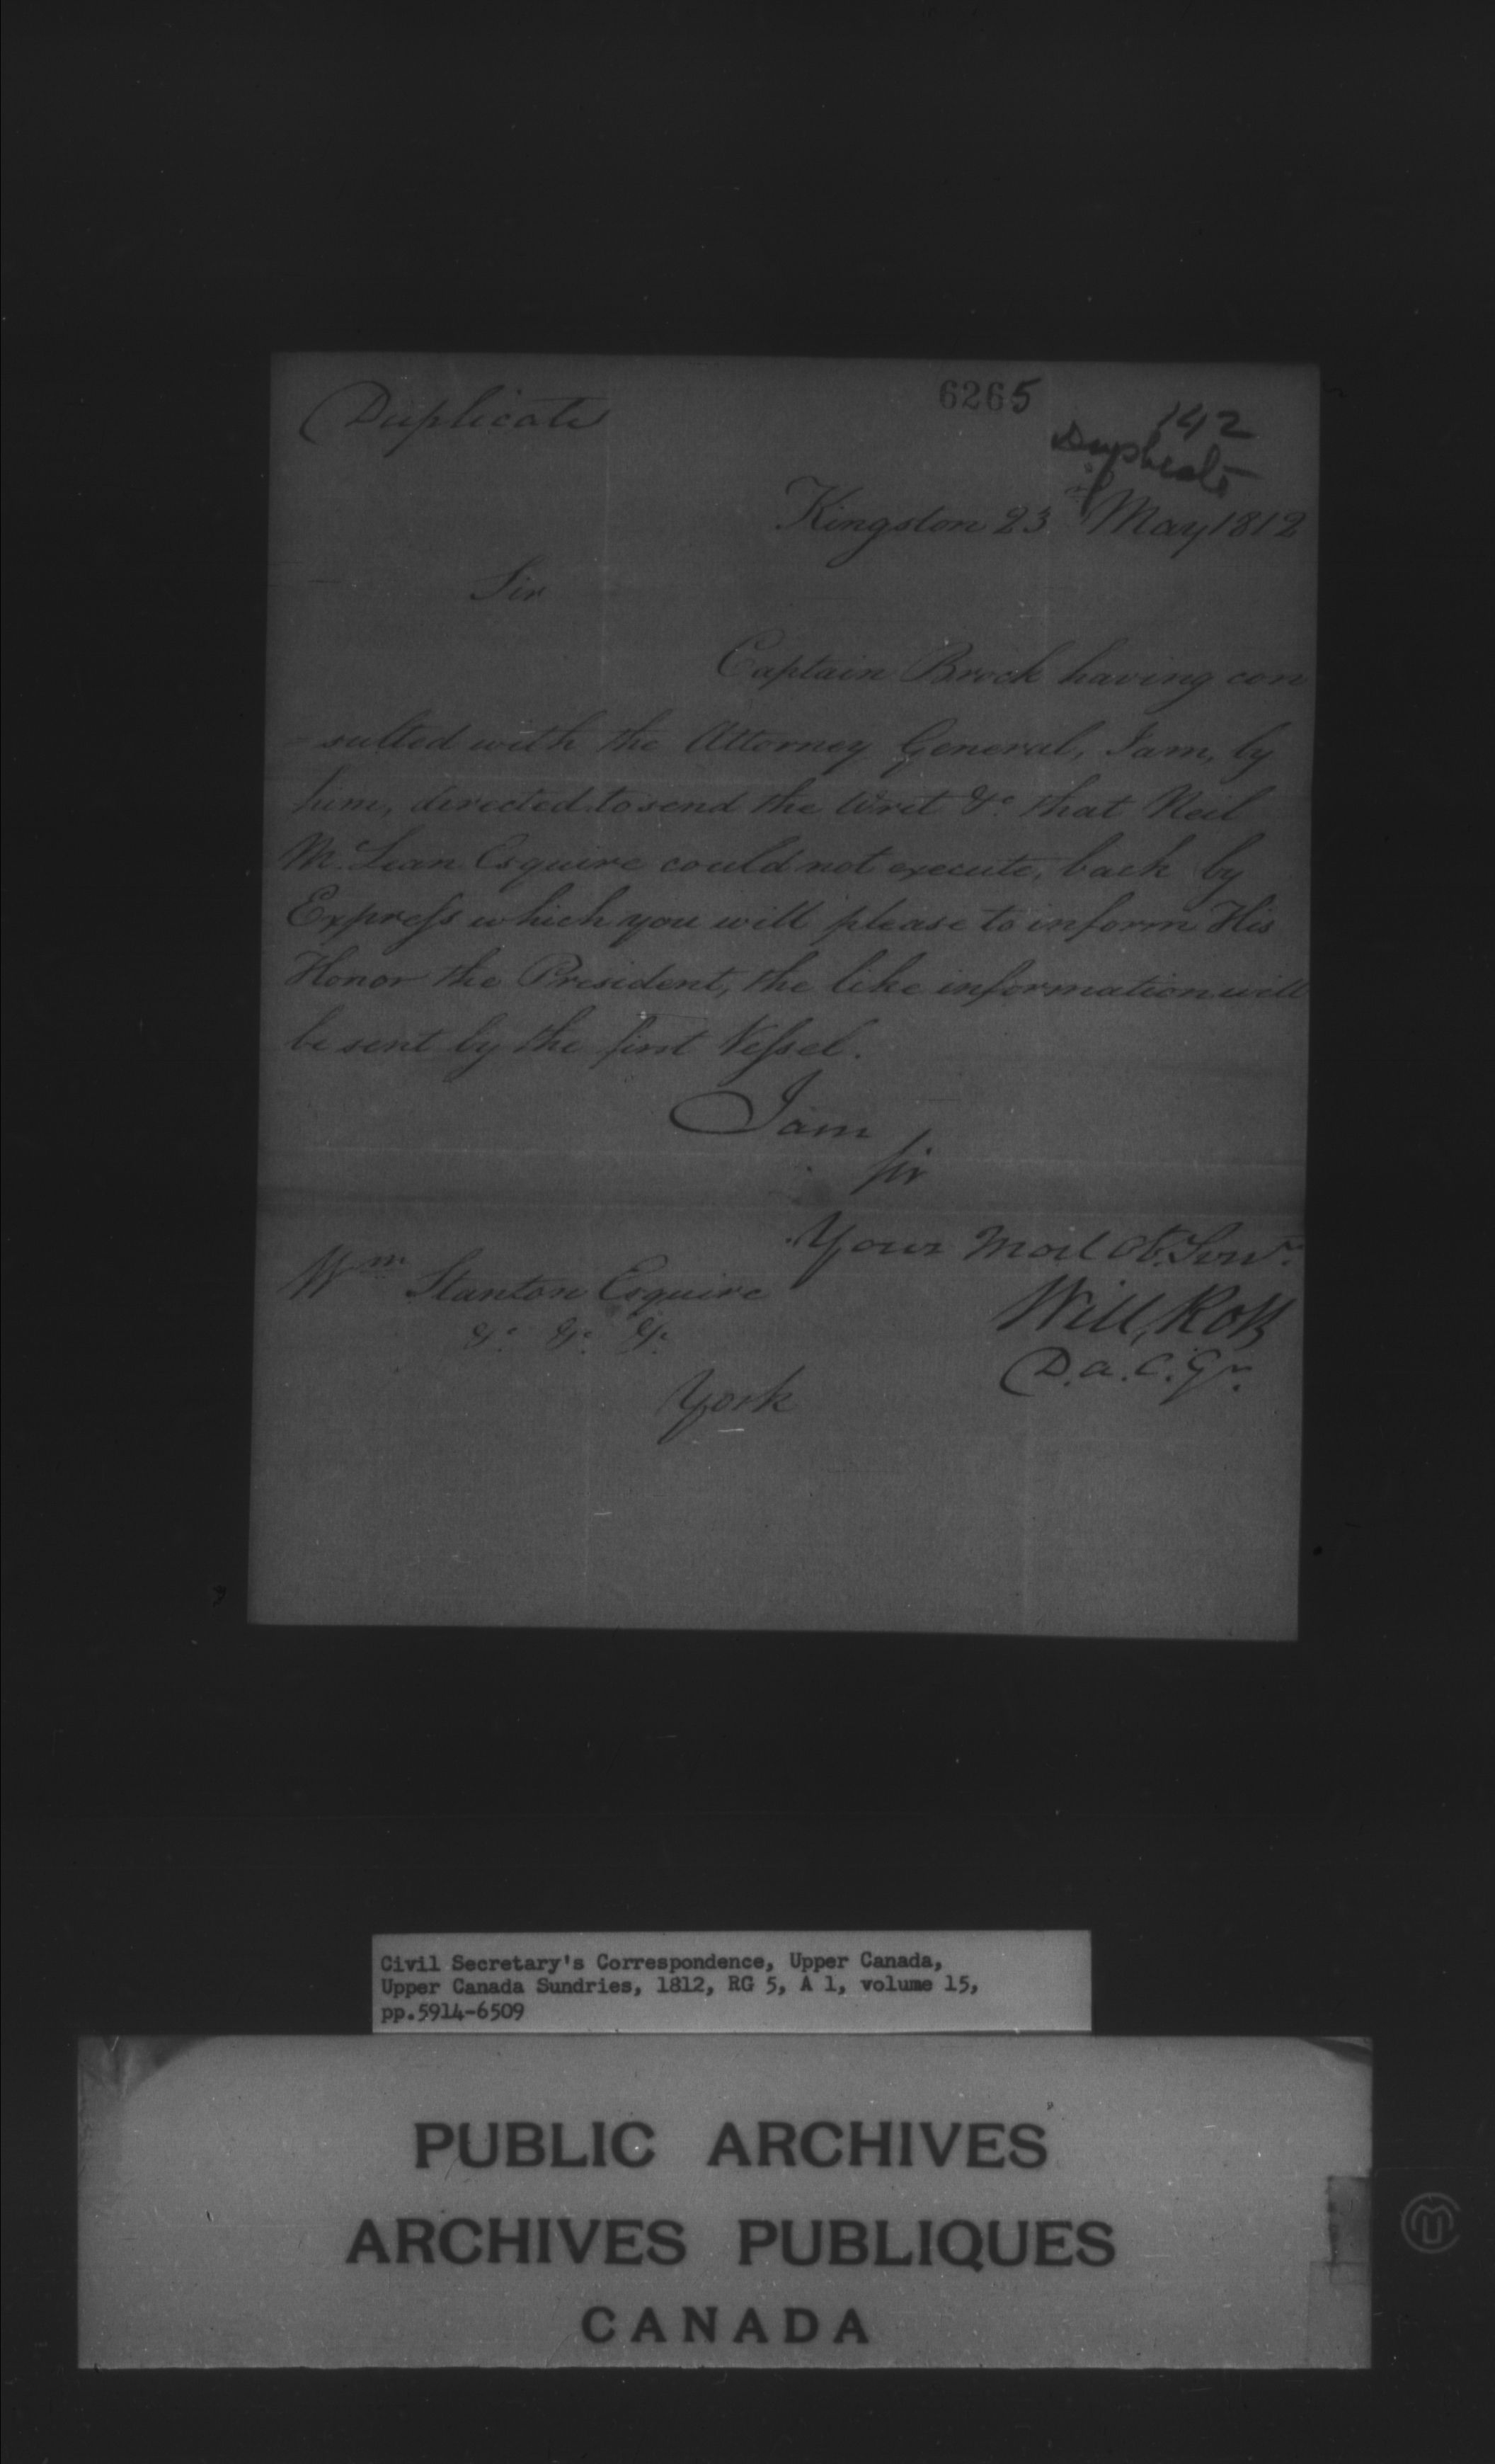 Duplicate
6265
142
Duplicate
Kingston 23d May 1812
Sir
Captain Brock having con
-sulted with the Attorney General, I am, by
him, directed to send the Writ &c. that Neil
McLean Esquire could not execute, back by
Express which you will please to inform His
Honor the President, the like information will
be sent by the first Vessel.
I am
Sir
Your Most Ob. Servt.
Wm Stanton Esquire
Will, Ross
&c. &c. &c.
D.a.C.Gn.
York
Civil Secretary's Correspondence, Upper Canada,
Upper Canada Sundries, 1812, RG 5, A 1, volume 15,
pp.5914-6509
PUBLIC ARCHIVES
ARCHIVES PUBLIQUES
CANADA